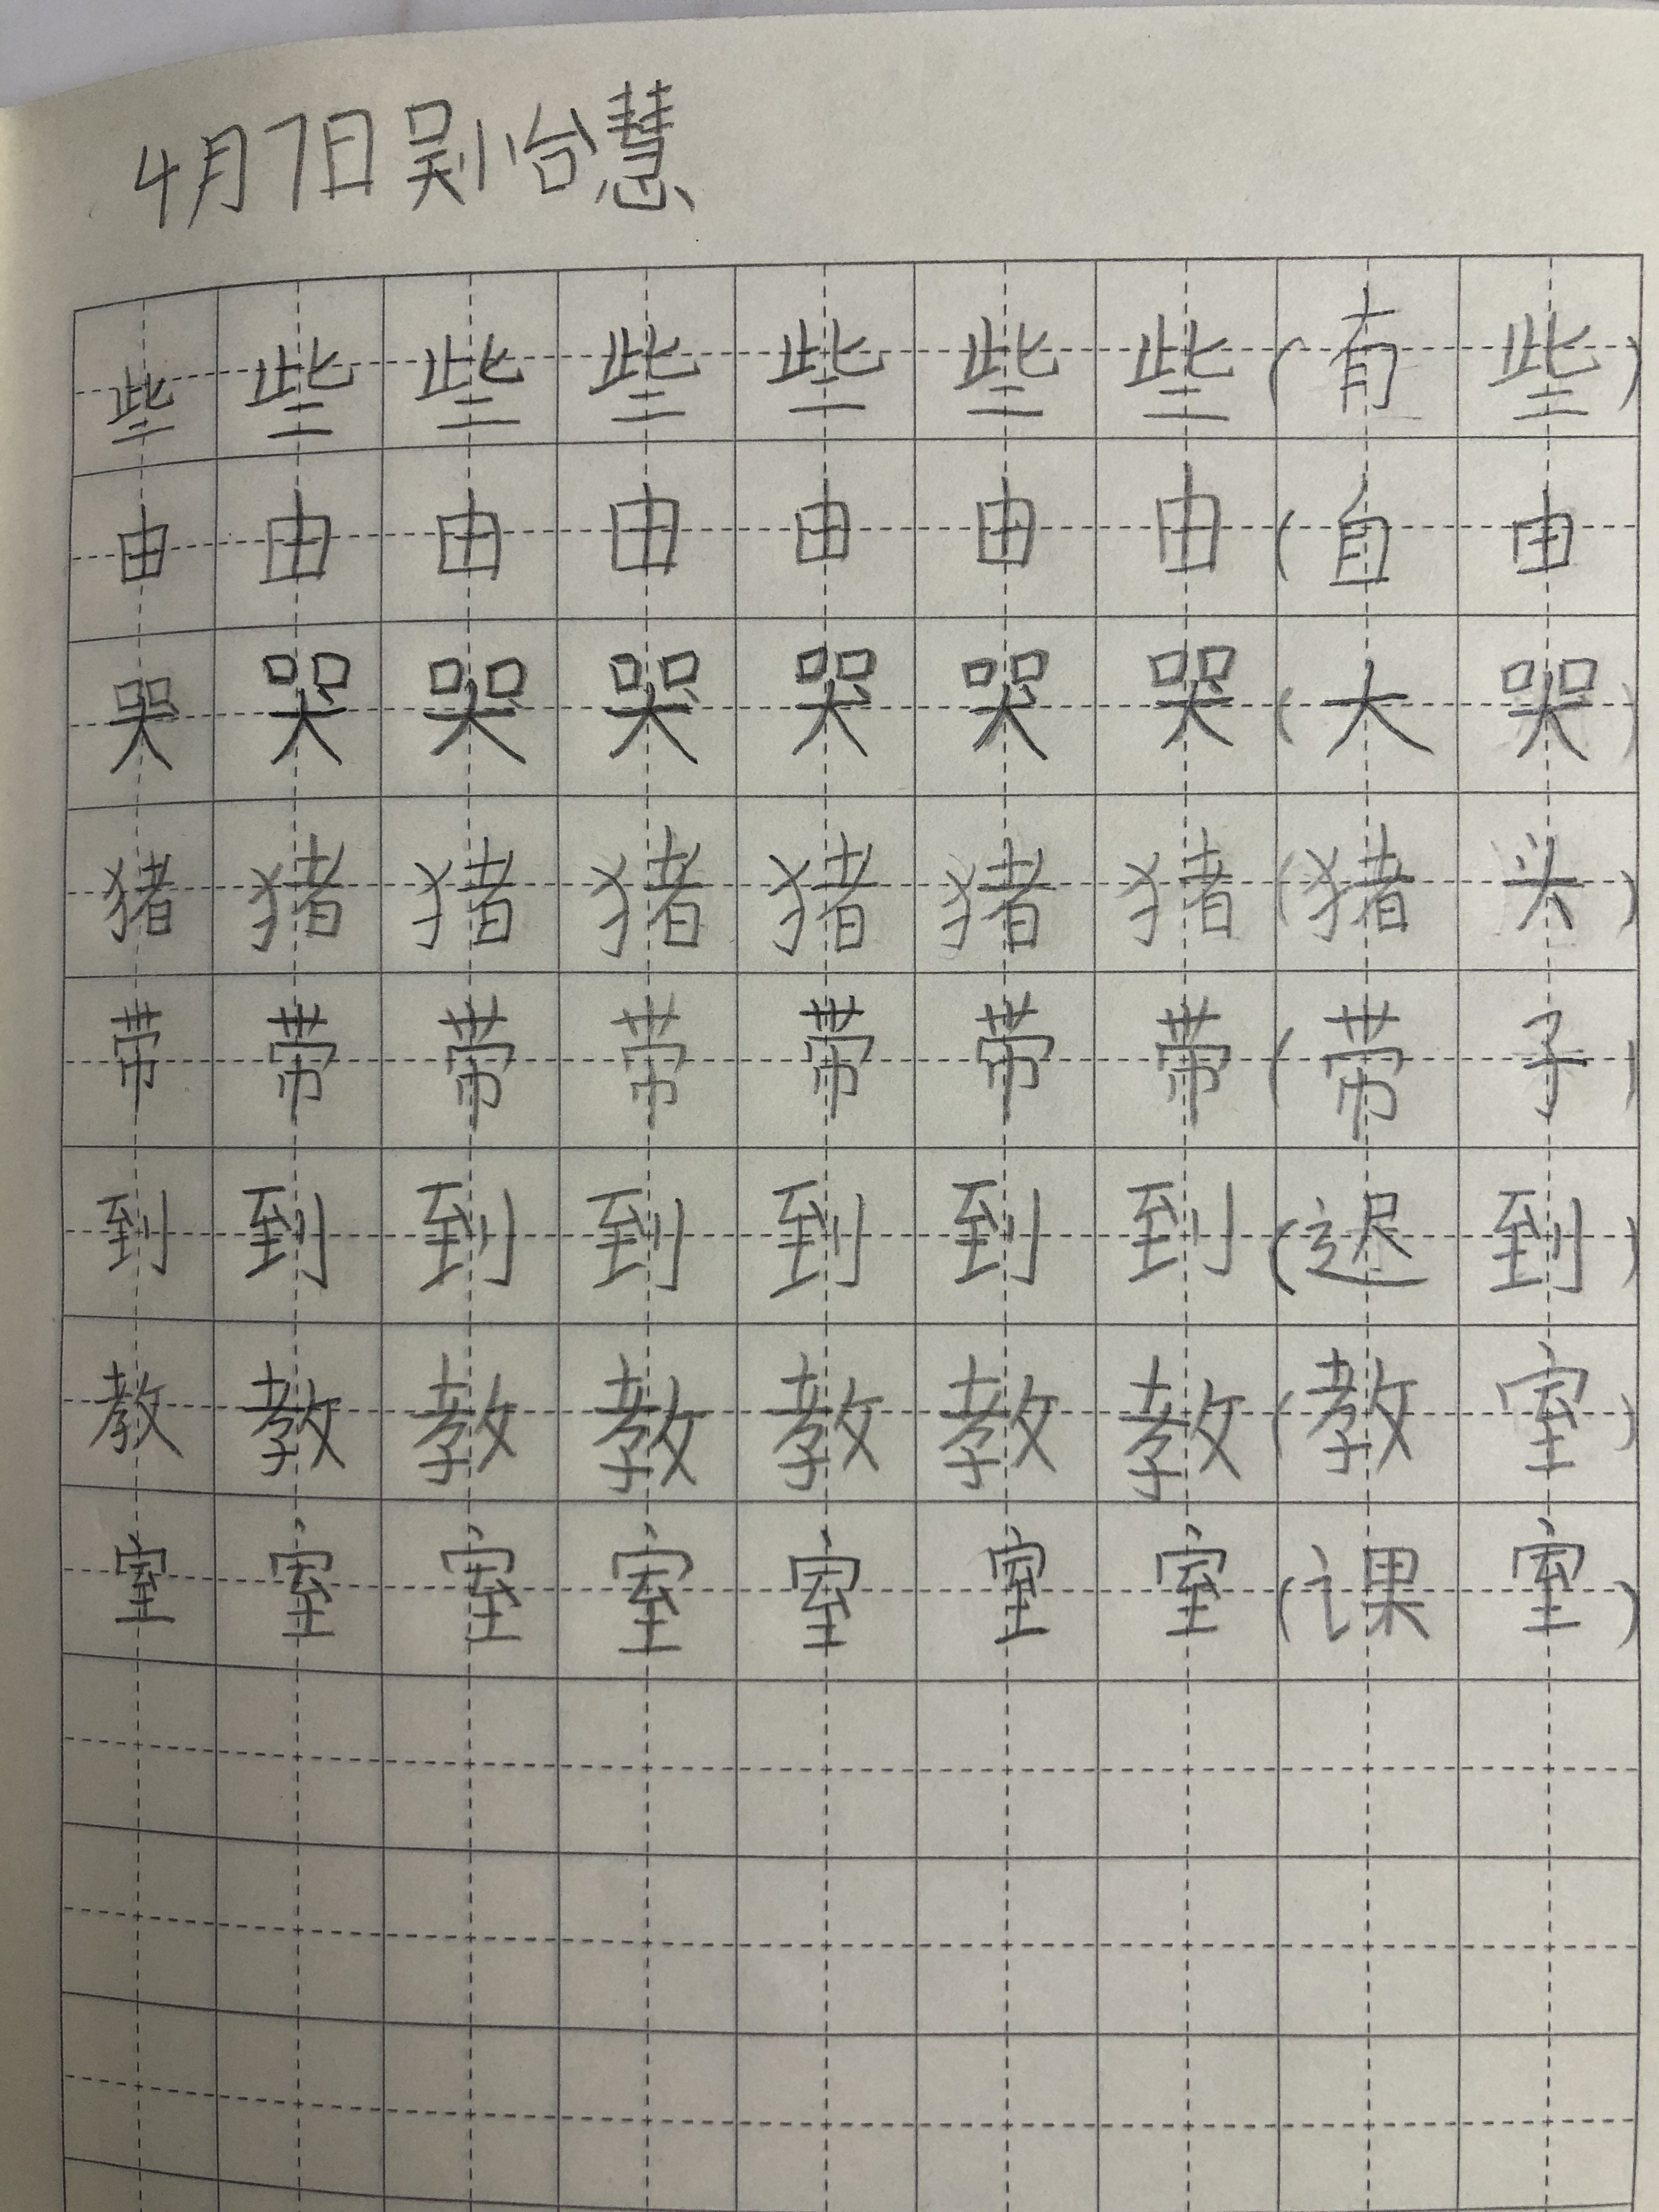 4月7日吴怡慧
些些些些些些些(有些)
由由由由由由由(自由
哭哭哭哭哭哭哭(大哭)
猪猪猪猪猪猪猪(猪头)
带带带带带带带(带子)
到到到到到到到(迟到)
教教教教教教教(教室)
室室室室室室室(课室)